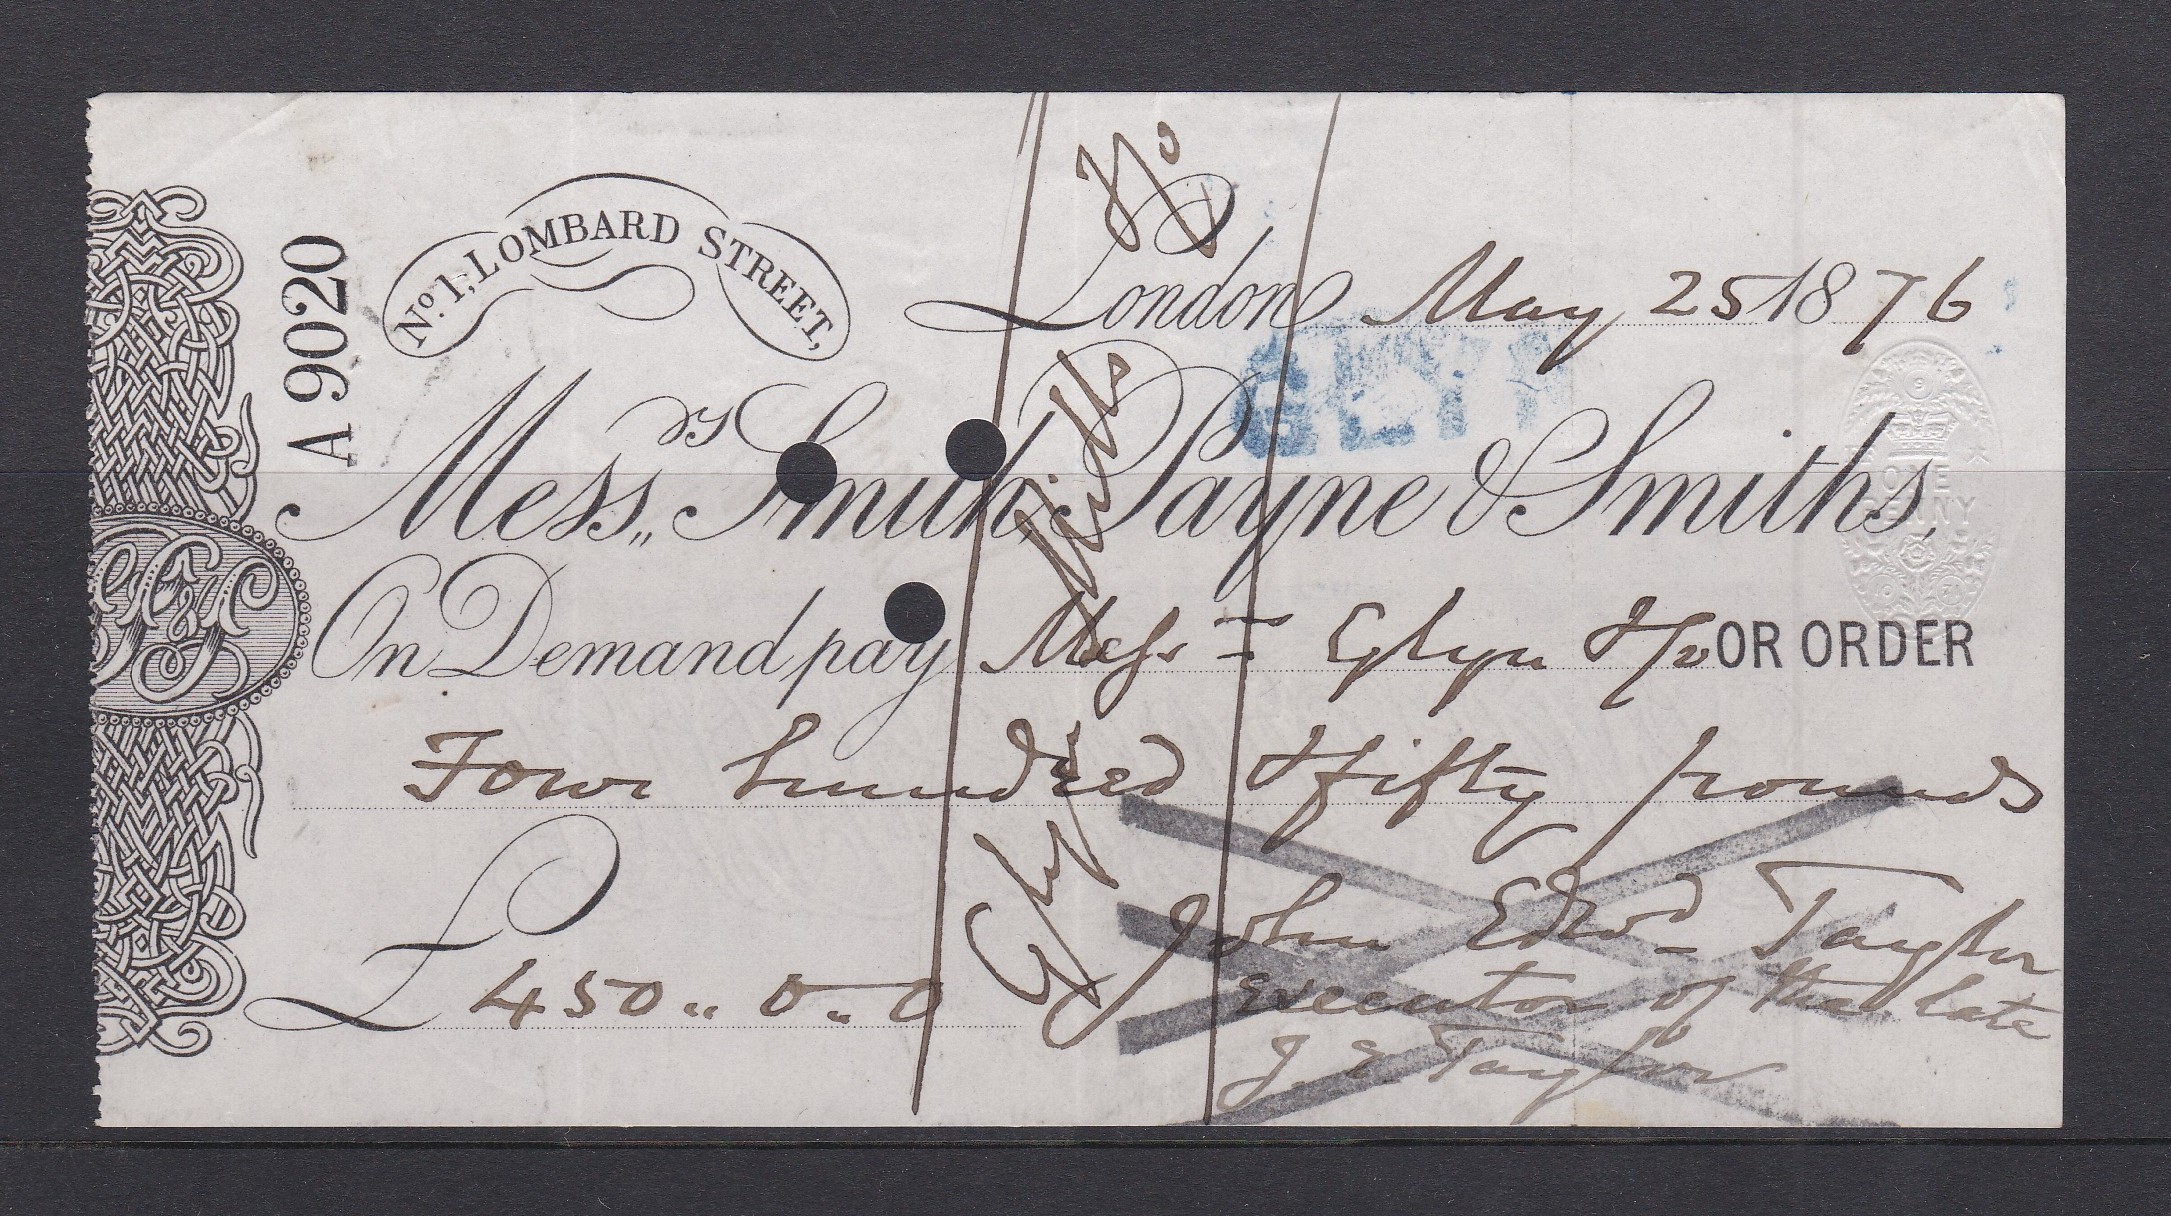 A 9020
No. 1, LOMBARD STREET,
London May 25 1876
Messrs Smith, Payne & Smiths,
ONE PENNY
On Demand pay Messrs Glyn & Co OR ORDER
Four hundred & fifty pounds
£ 450 " 0 " 0
John Edwd Taylor
executor of the late
J. E. Taylor
Glyn Mills & Co